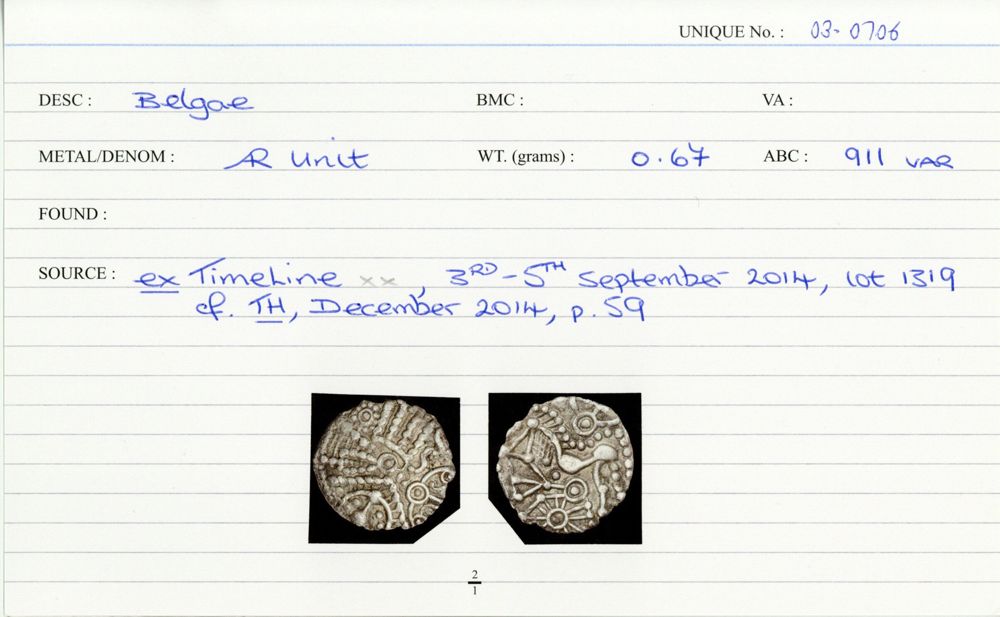 UNIQUE No. : 03-0706
DESC : Belgae BMC : VA :
METAL/DENOM : AR Unit WT. (grams) : 0.67 ABC : 911 VAR
FOUND :
SOURCE : ex TimeLine xx, 3RD-5TH September 2014, lot 1319
cf. TH, December 2014, p. 59
2
1